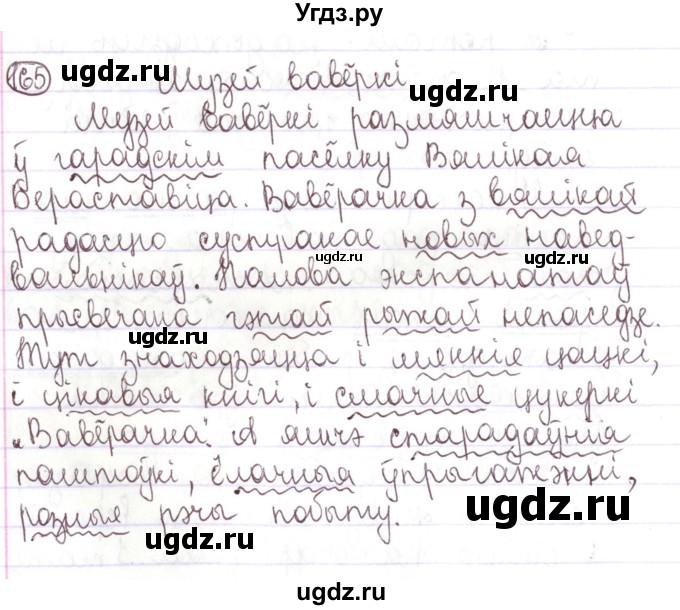 Угдз.ру
165 Музей вавёркі
Музей вавёркі размяшчаецца
ў гарадскім пасёлку Вялікая
Бераставіца. Вавёрачка з вялікай
радасцю сустракае новых навед-
вальнікаў. Палова экспанатаў
прысвечана гэтай рыжай непаседзе.
Тут знаходзяцца і мяккія цацкі,
і цікавыя кнігі, і смачныя цукеркі
„Вавёрачка". А яшчэ старадаўнія
паштоўкі, ёлачныя ўпрыгажэнні,
розныя рэчы побыту.
ugdz.ru
ugdz.ru
ugdz.ru
ugdz.ru
ugdz.ru
ugdz.ru
ugdz.ru
ugdz.ru
ugdz.ru
ugdz.ru